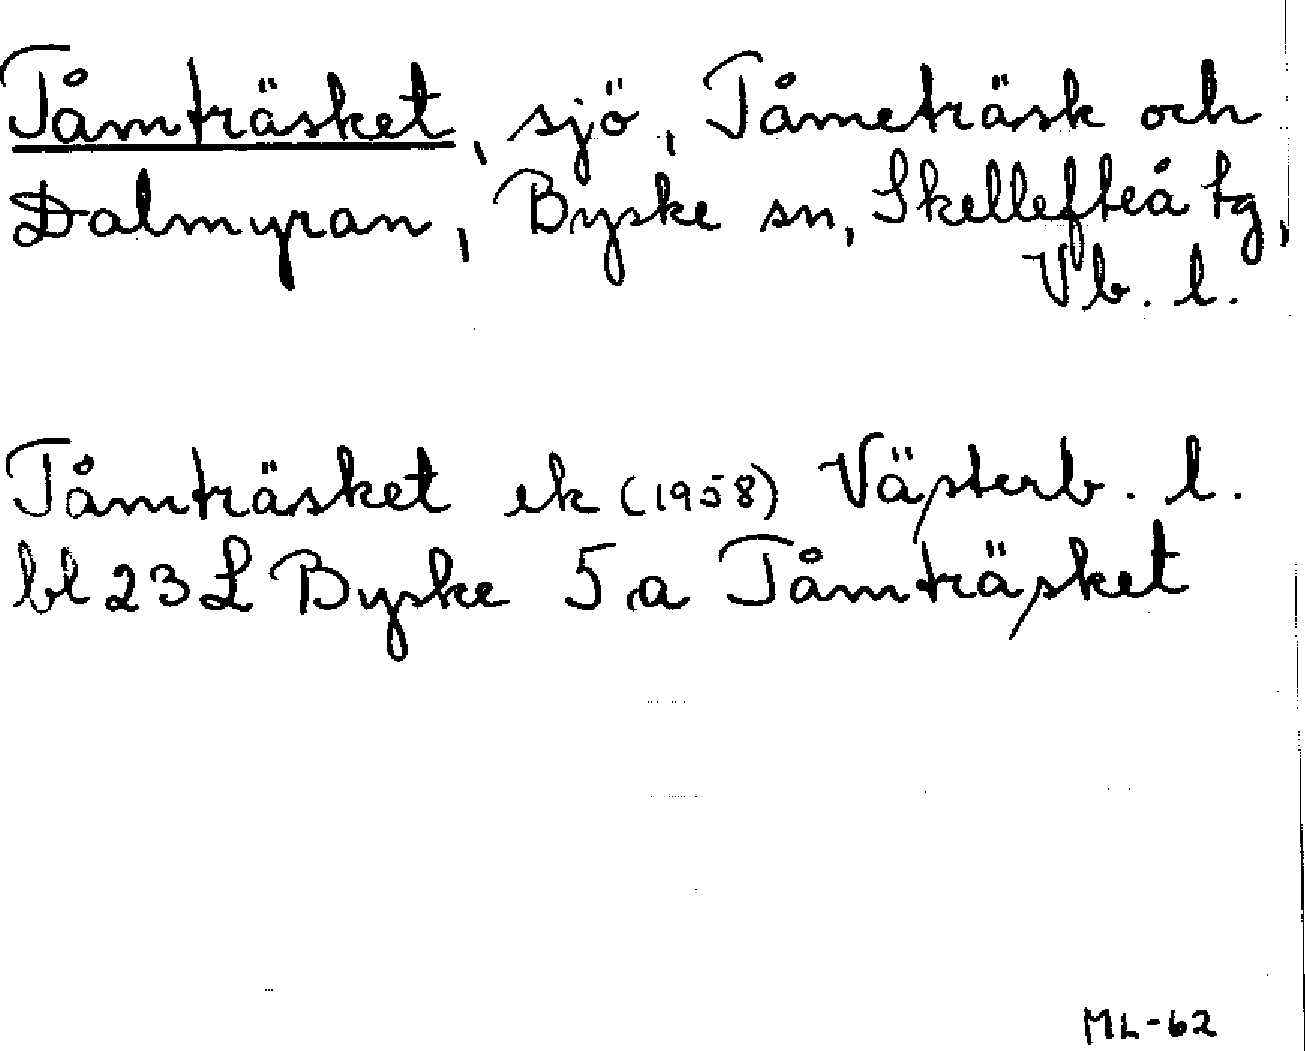 Tåmträsket, sjö, Tåmeträsk och
Dalmyran, Byske sn, Skellefteå tg,
Vb. l.
Tåmträsket ek (1958) Västerb. l.
bl 23 L Byske 5 a Tåmträsket
ML-62